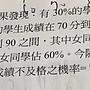 果發現,有30%的學
的學生成績在70分到
到90之間,其中女同
女同學佔60%。今隨
成績不及格之機率=